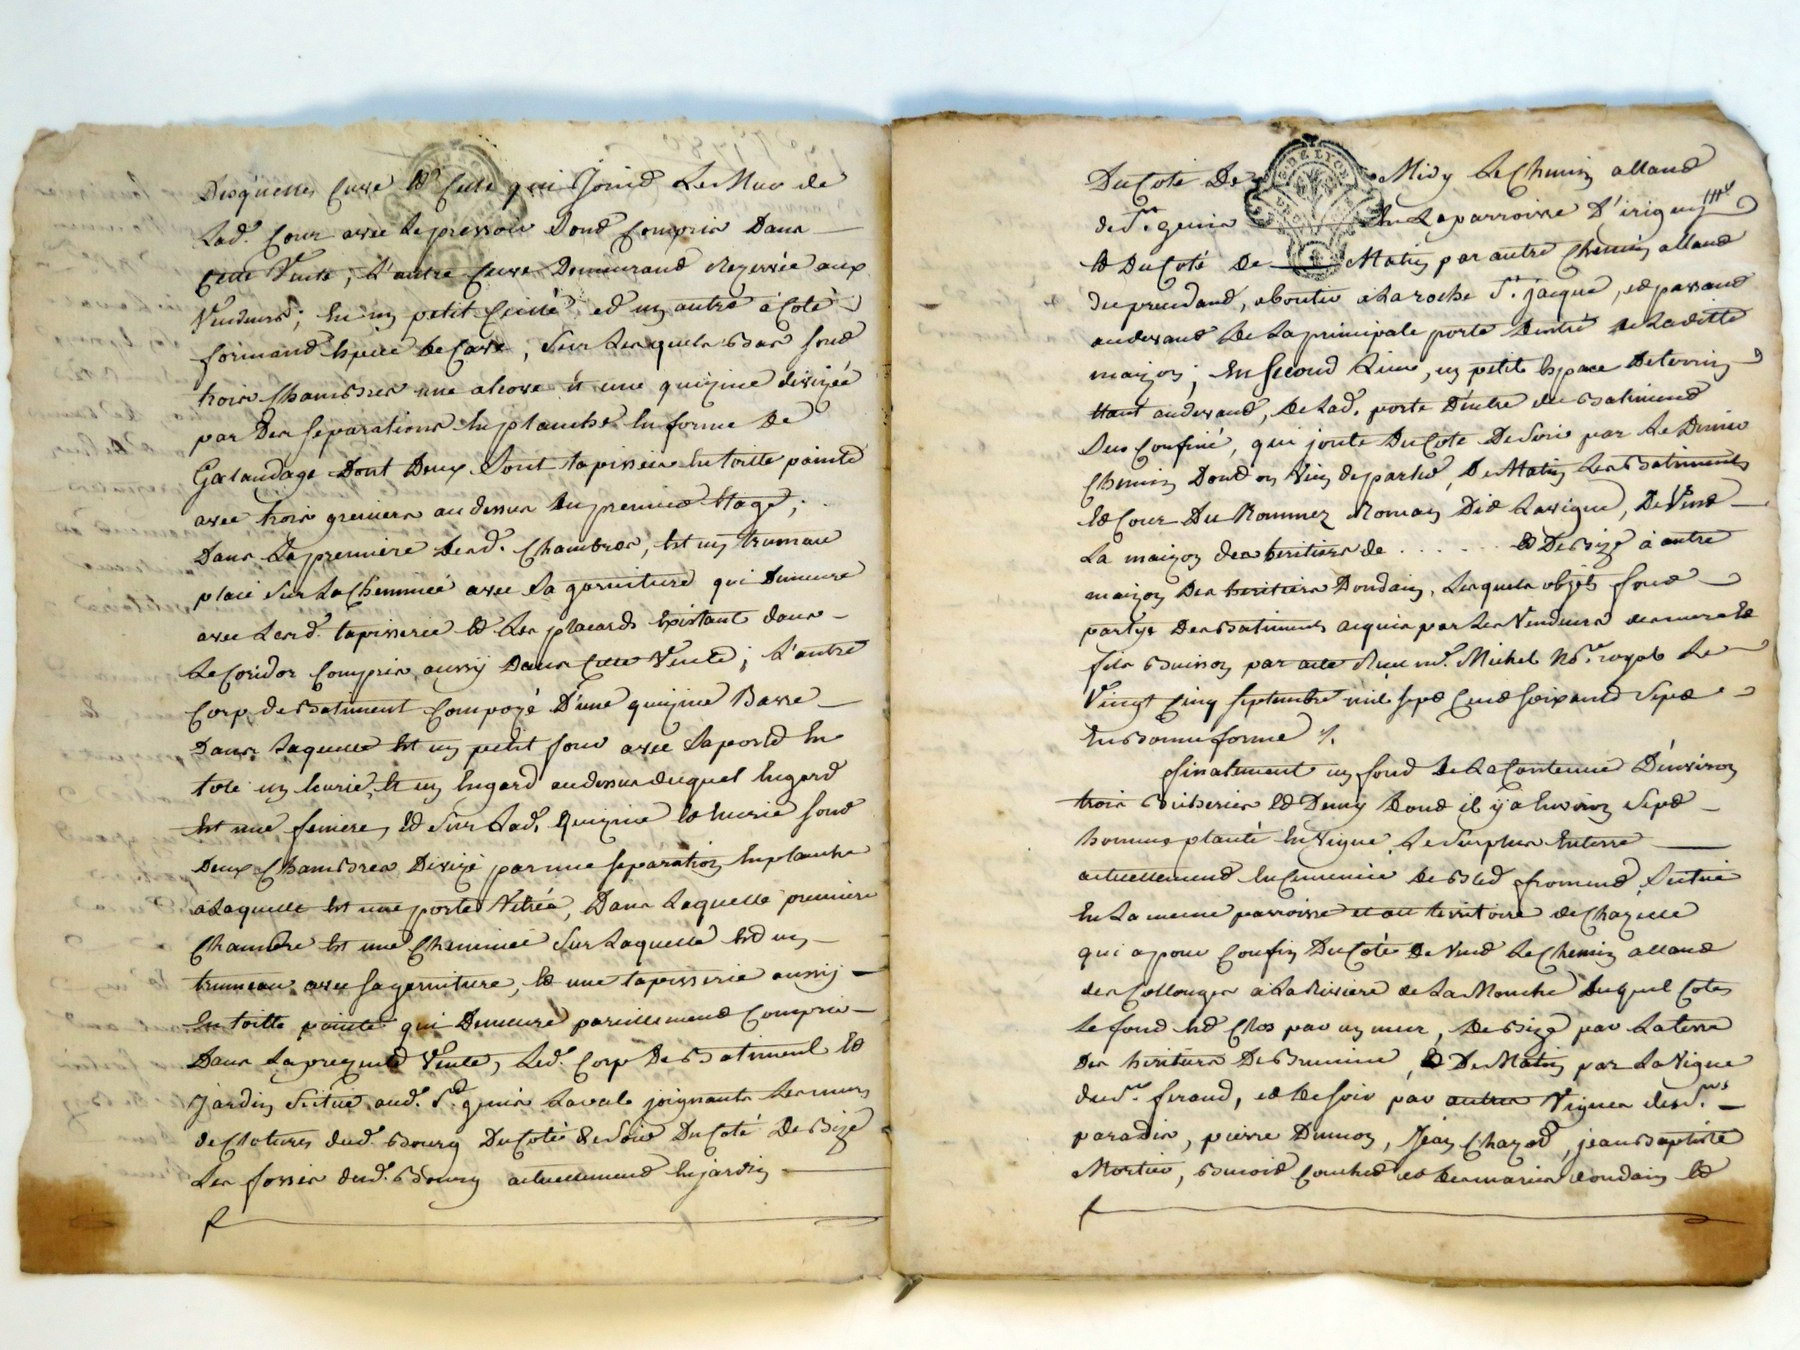 Desquelles Cuve Et Celle qui Joind Le Mur de
Lad. Cour avec Le pressoir Dond Compris Dans
Cette Vente, L'autre Cuve Demeurand Rezervée aux
Vendeurs; En un petit et un autre à Coté
formand Espece de Cave, Sur Lesquels Bas sond
trois Chambres une alcove et une quizine divizée
par Des separations En planches En forme De
Galandage Dont Deux Sont tapissées En toille peinte
avec trois greniers au dessus du premier Etage;
Dans La premiere Desd. Chambres, Est un trumau
placé Sur La Cheminée avec Sa garniture qui Demeure
avec Lesd. tapisserie Et Les placards Existant dans
Le Coridor Compris aussy Dans Cette Vente; L'autre
Corp de Batiment Compozé D'une quizine Basse
Dans Laquelle Est un petit four avec Sa porte En
tole un Eurie, Et un Engard au dessus duquel Engard
Est une feniere, Et Sur Lad. Quizine Et Eurie sond
Deux Chambres Divizé par une separation En planche
a Laquelle Est une porte Vitrée, Dans Laquelle premiere
Chambre Est une Cheminée Sur Laquelle Est un
trumeau avec sa garniture, Et une tapisserie aussy
En toille peinte qui Demeure pareillemend Compris
Dans La prezente Vente, Led. Corp De Batiment Et
Jardin Situé aud. St. genis Laval joignants Les murs
de Clotures dud. Bourg Du Coté De Soir Du Coté De Bize
Les fossés dud. Bourg actuellemend En jardin
Du Coté De Midy Le Chemin alland
de St. genis En La parroisse D'irigny
Et Du Coté De Matin par autre Chemin alland
Du prendand, aboutir a La roche St. jacque, et passand
au devand De La principale porte D'entré De Laditte
maizon; En Second Lieu, un petit Espace De terrin
Etant au devand, De Lad. porte D'entré du Batimend
Sus Confiné, qui joute Du Coté De Soir par Le Dernier
Chemin Dond on Vien de parler, De Matin Les Batiments
Et Cour Du Rommez Romain Did Lavigne, De Vend
La maizon des heritiers de . . . . . . Et De Bize à autre
maizon Des heritiers Dondain, Lesquels objets sond
partye Des Batiments acquis par Les Vendeurs des mere Et
fils Buisson par acte Reçu me. Michel No.re royal Le
Vingt Cinq Septembre mil Sept Cend soixand Sept
En Bonne forme /.
finalement un fond De La Contenue D'environ
trois Bicherées Et Demy Dond il y a Environ Sept
hommes planté En Vigne, Le Surplus En terre
actuellemend En Cemencée De Bled fromend, Situé
En La meme parroisse et au territoire de Chazelle
qui a pour Confin Du Coté De Vend Le Chemin alland
des Collonges à La Riviere de La Mouche Duquel Coté
Le fond Est Clos par un mur, De Bize par La terre
Des heritiers De , Et De Matin par La Vigne
du Sr. ferand, et De Soir par autres Vignes des Srs.
paradis, pierre Dumon, Jean Chazod, jean Baptiste
Mortier, Benoid Couched et Des mariés dondain Et